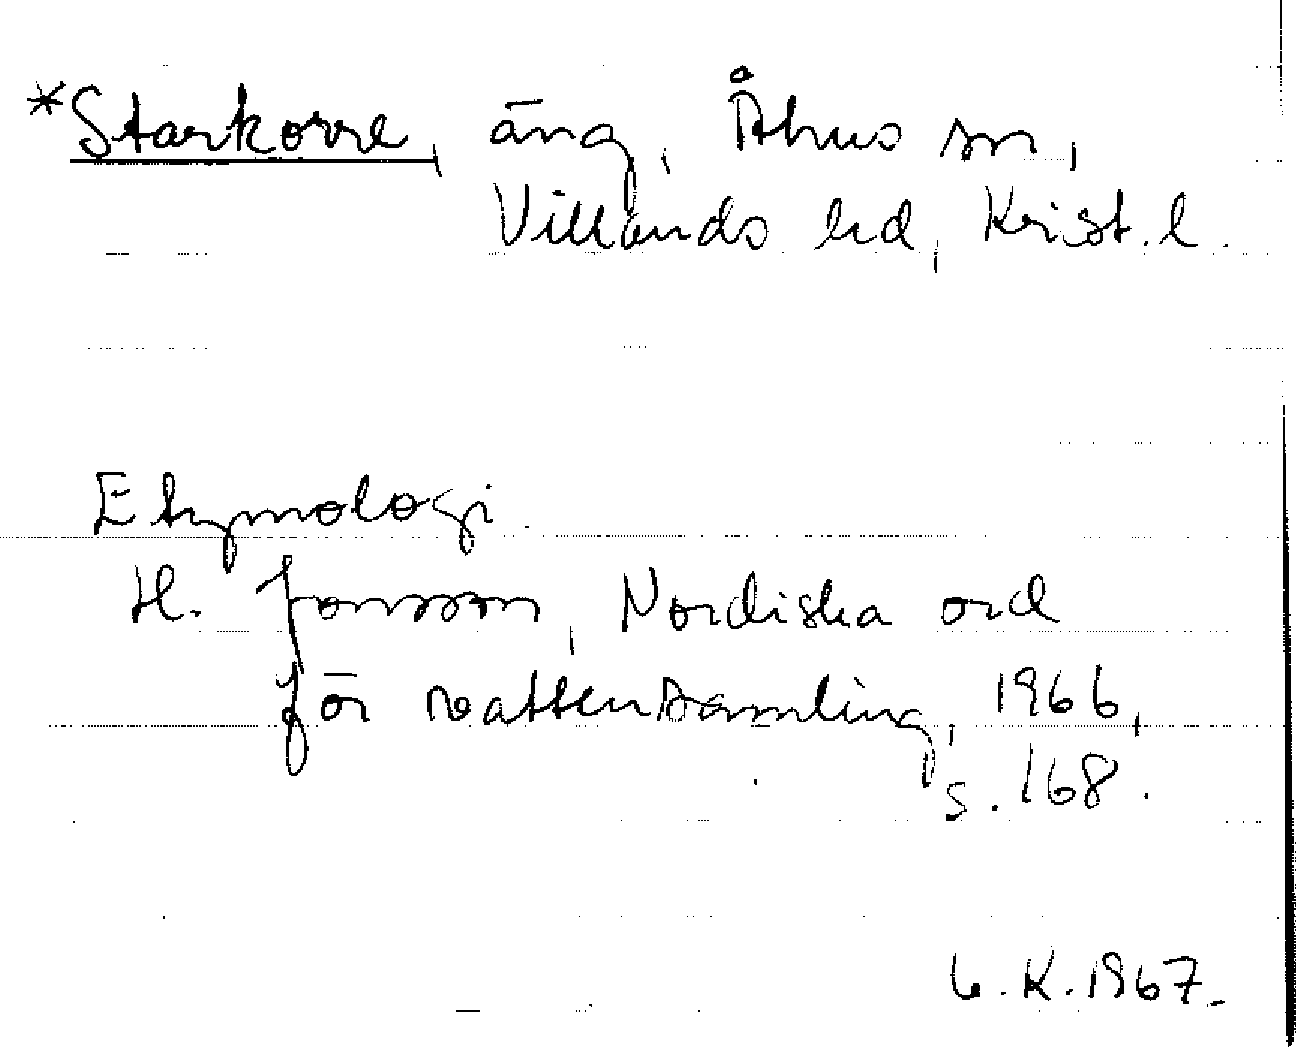 *Starkorre, äng, Åhus sn,
Villands hd, Krist. l.
Etymologi
H. Jonsson, Nordiska ord
för vattensamling, 1966,
s. 168.
K. 1967.